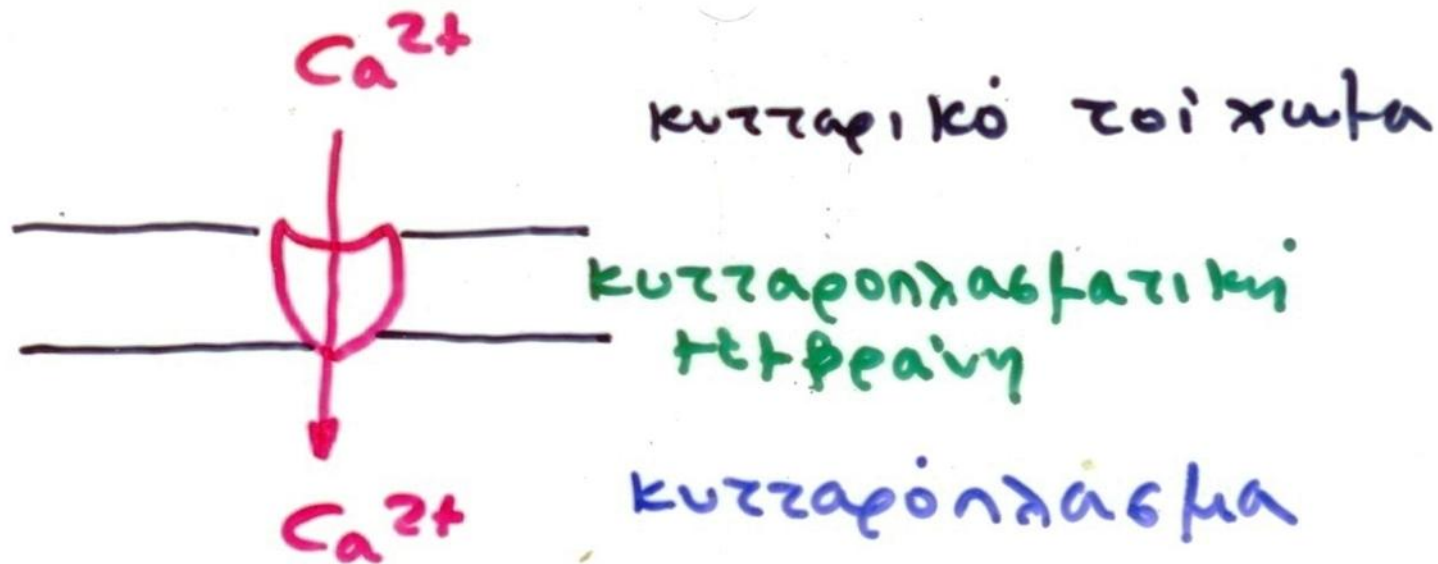 Ca²⁺
κυτταρικό τοίχωμα
κυτταροπλασματική
μεμβράνη
Ca²⁺
κυτταρόπλασμα